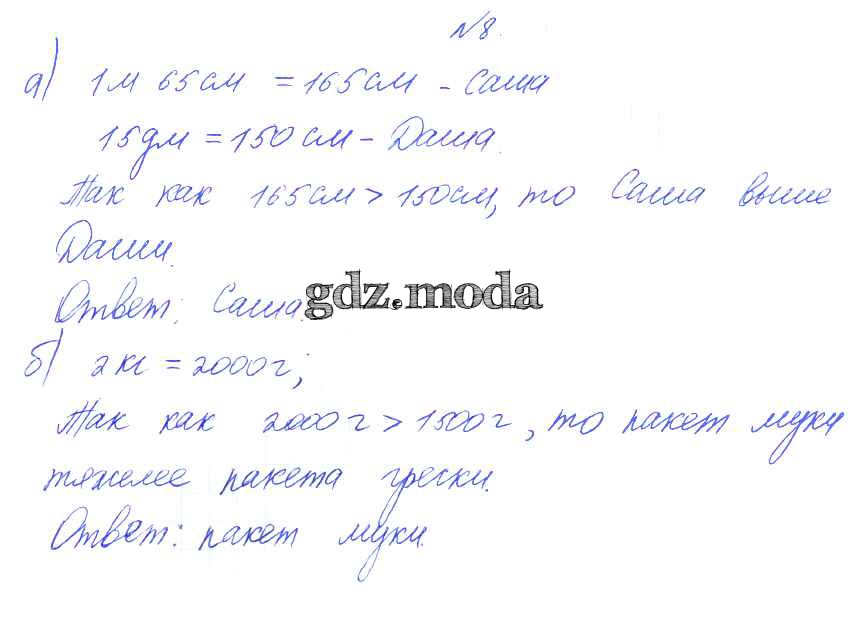 №8.
а) 1м 65см = 165см - Саша
15дм = 150см - Даша.
Так как 165см > 150см, то Саша выше
Даши.
Ответ: Саша.
gdz.moda
б) 2кг = 2000г;
Так как 2000г > 1500г, то пакет муки
тяжелее пакета гречки.
Ответ: пакет муки.